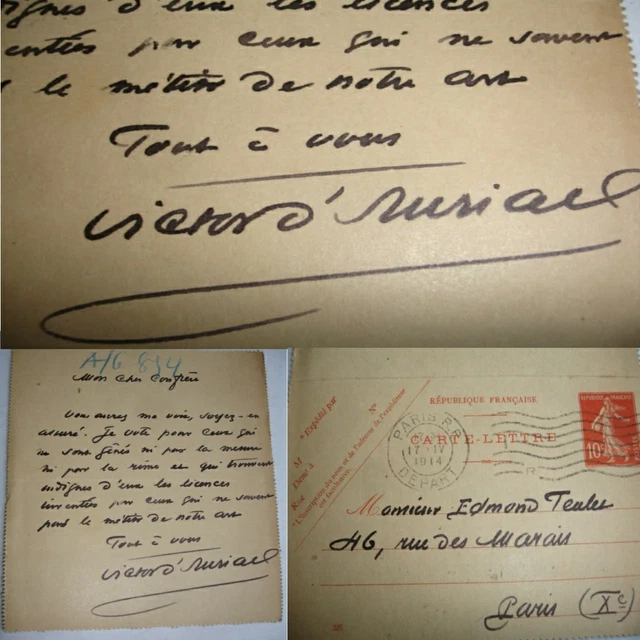 ignes d'eux les licences
inventées par ceux qui ne savent
le métier de notre art
Tout à vous
Victor d'Auriac
A/6 834
Mon cher Confrère
Vous aurez ma voix, soyez-en
assuré. Je vote pour ceux qui
ne sont gênés ni par la mesure
ni par la rime et qui trouvent
indignes d'eux les licences
inventées par ceux qui ne savent
pas le métier de notre art
Tout à vous
Victor d'Auriac
RÉPUBLIQUE FRANÇAISE
CARTE-LETTRE
* Expédié par
N°
M
Rue
PARIS R.P.
17 - 17
1914
DÉPART
REPUBLIQUE FRANÇAISE
10
Monsieur Edmond Teulet
46, rue des Marais
Paris (Xe)